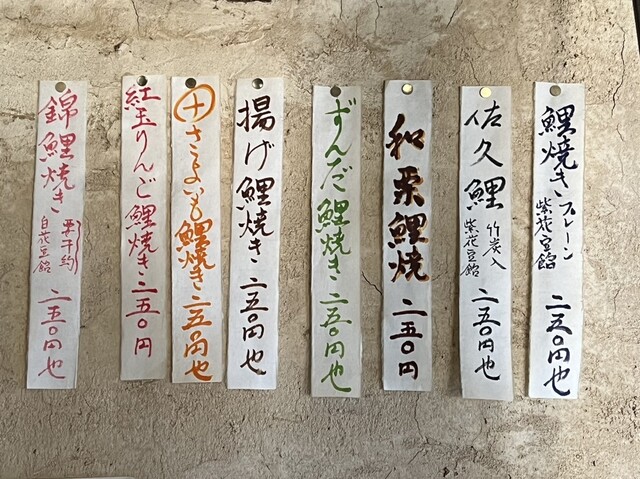 鯉焼き
プレーン
紫花豆餡
二五〇円也
佐久鯉
竹炭入
紫花豆餡
二五〇円也
和栗鯉焼
二五〇円
ずんだ鯉焼き二五〇円也
揚げ鯉焼き二五〇円也
十さつまいも鯉焼き二五〇円也
紅玉りんご鯉焼き二五〇円
錦鯉焼き
要予約
白花豆餡
二五〇円也